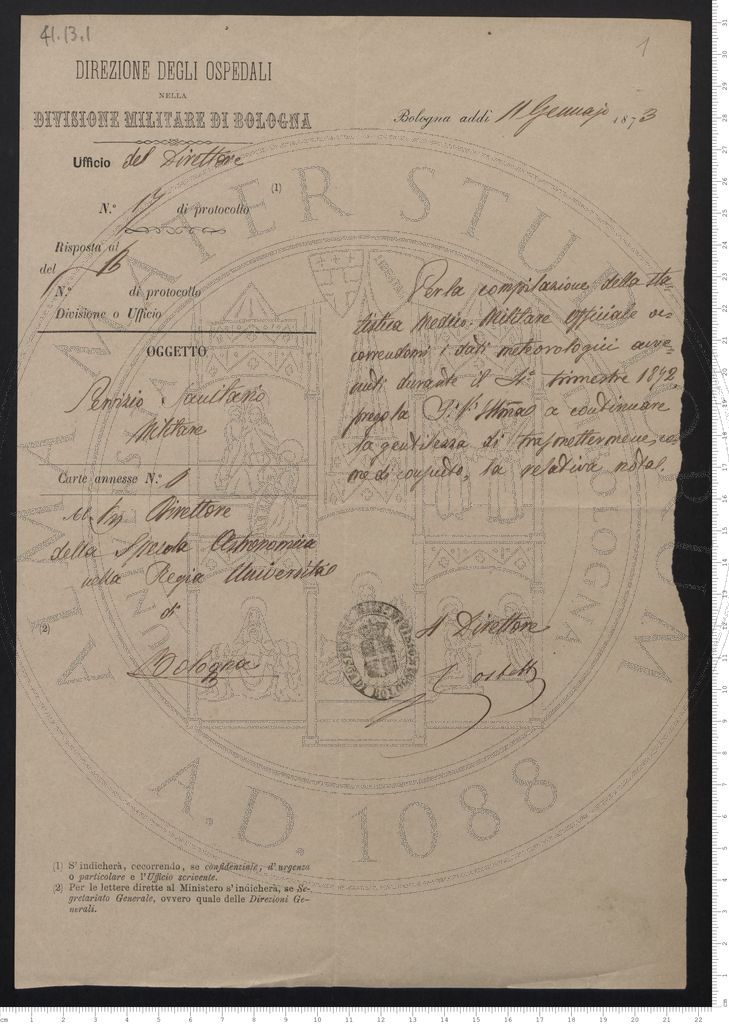 41.13.1
1
DIREZIONE DEGLI OSPEDALI
NELLA
DIVISIONE MILITARE DI BOLOGNA
Bologna addì 11 Gennajo 1873
Ufficio del Direttore
(1)
N.º 17 di protocollo
Risposta al
del
N.º di protocollo
Divisione o Ufficio
OGGETTO
Servizio Sanitario
Militare
Carte annesse N.º
Al Sig Direttore
della Specola Astronomica
nella Regia Università
di
(2)
Bologna
Per la compilazione della Sta-
tistica Medico-Militare Officiale oc-
correndomi i dati meteorologici avve-
nuti durante il 4º trimestre 1872,
prego la S.V. Illma a continuare
la gentilezza di trasmettermene, co-
me di consueto, la relativa nota.
Il Direttore
(1) S'indicherà, occorrendo, se confidenziale, d'urgenza
o particolare e l'Ufficio scrivente.
(2) Per le lettere dirette al Ministero s'indicherà, se Se-
gretariato Generale, ovvero quale delle Direzioni Ge-
nerali.
ALMA MATER STUDIORUM
A.D. 1088